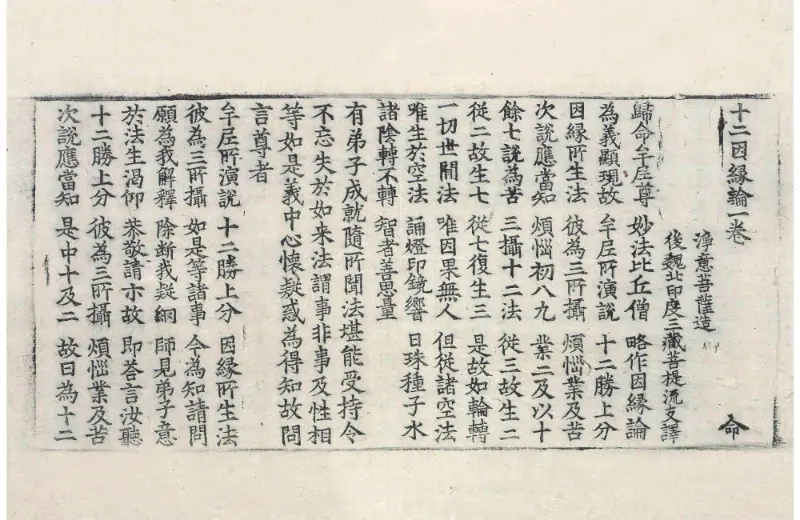 十二因縁論一卷 命
淨意菩薩造
後魏北印度三藏菩提流支譯
歸命牟尼尊 妙法比丘僧 略作因縁論
為義顯現故 牟尼所演說 十二勝上分
因縁所生法 彼為三所攝 煩惱業及苦
次說應當知 煩惱初八九 業二及以十
餘七說為苦 三攝十二法 從三故生二
從二故生七 從七復生三 是故如輪轉
一切世間法 唯因果無人 但從諸空法
唯生於空法 誦燈印鏡響 日珠種子水
諸陰轉不轉 智者善思量
有弟子成就隨所聞法堪能受持令
不忘失於如来法謂事非事及性相
等如是義中心懷疑惑為得知故問
言尊者
牟尼所演說 十二勝上分 因縁所生法
彼為三所攝 如是等諸事 今為知請問
願為我解釋 除断我疑網 師見弟子意
於法生渴仰 恭敬請示故 即荅言汝聽
十二勝上分 彼為三所攝 煩惱業及苦
次說應當知 是中十及二 故曰為十二